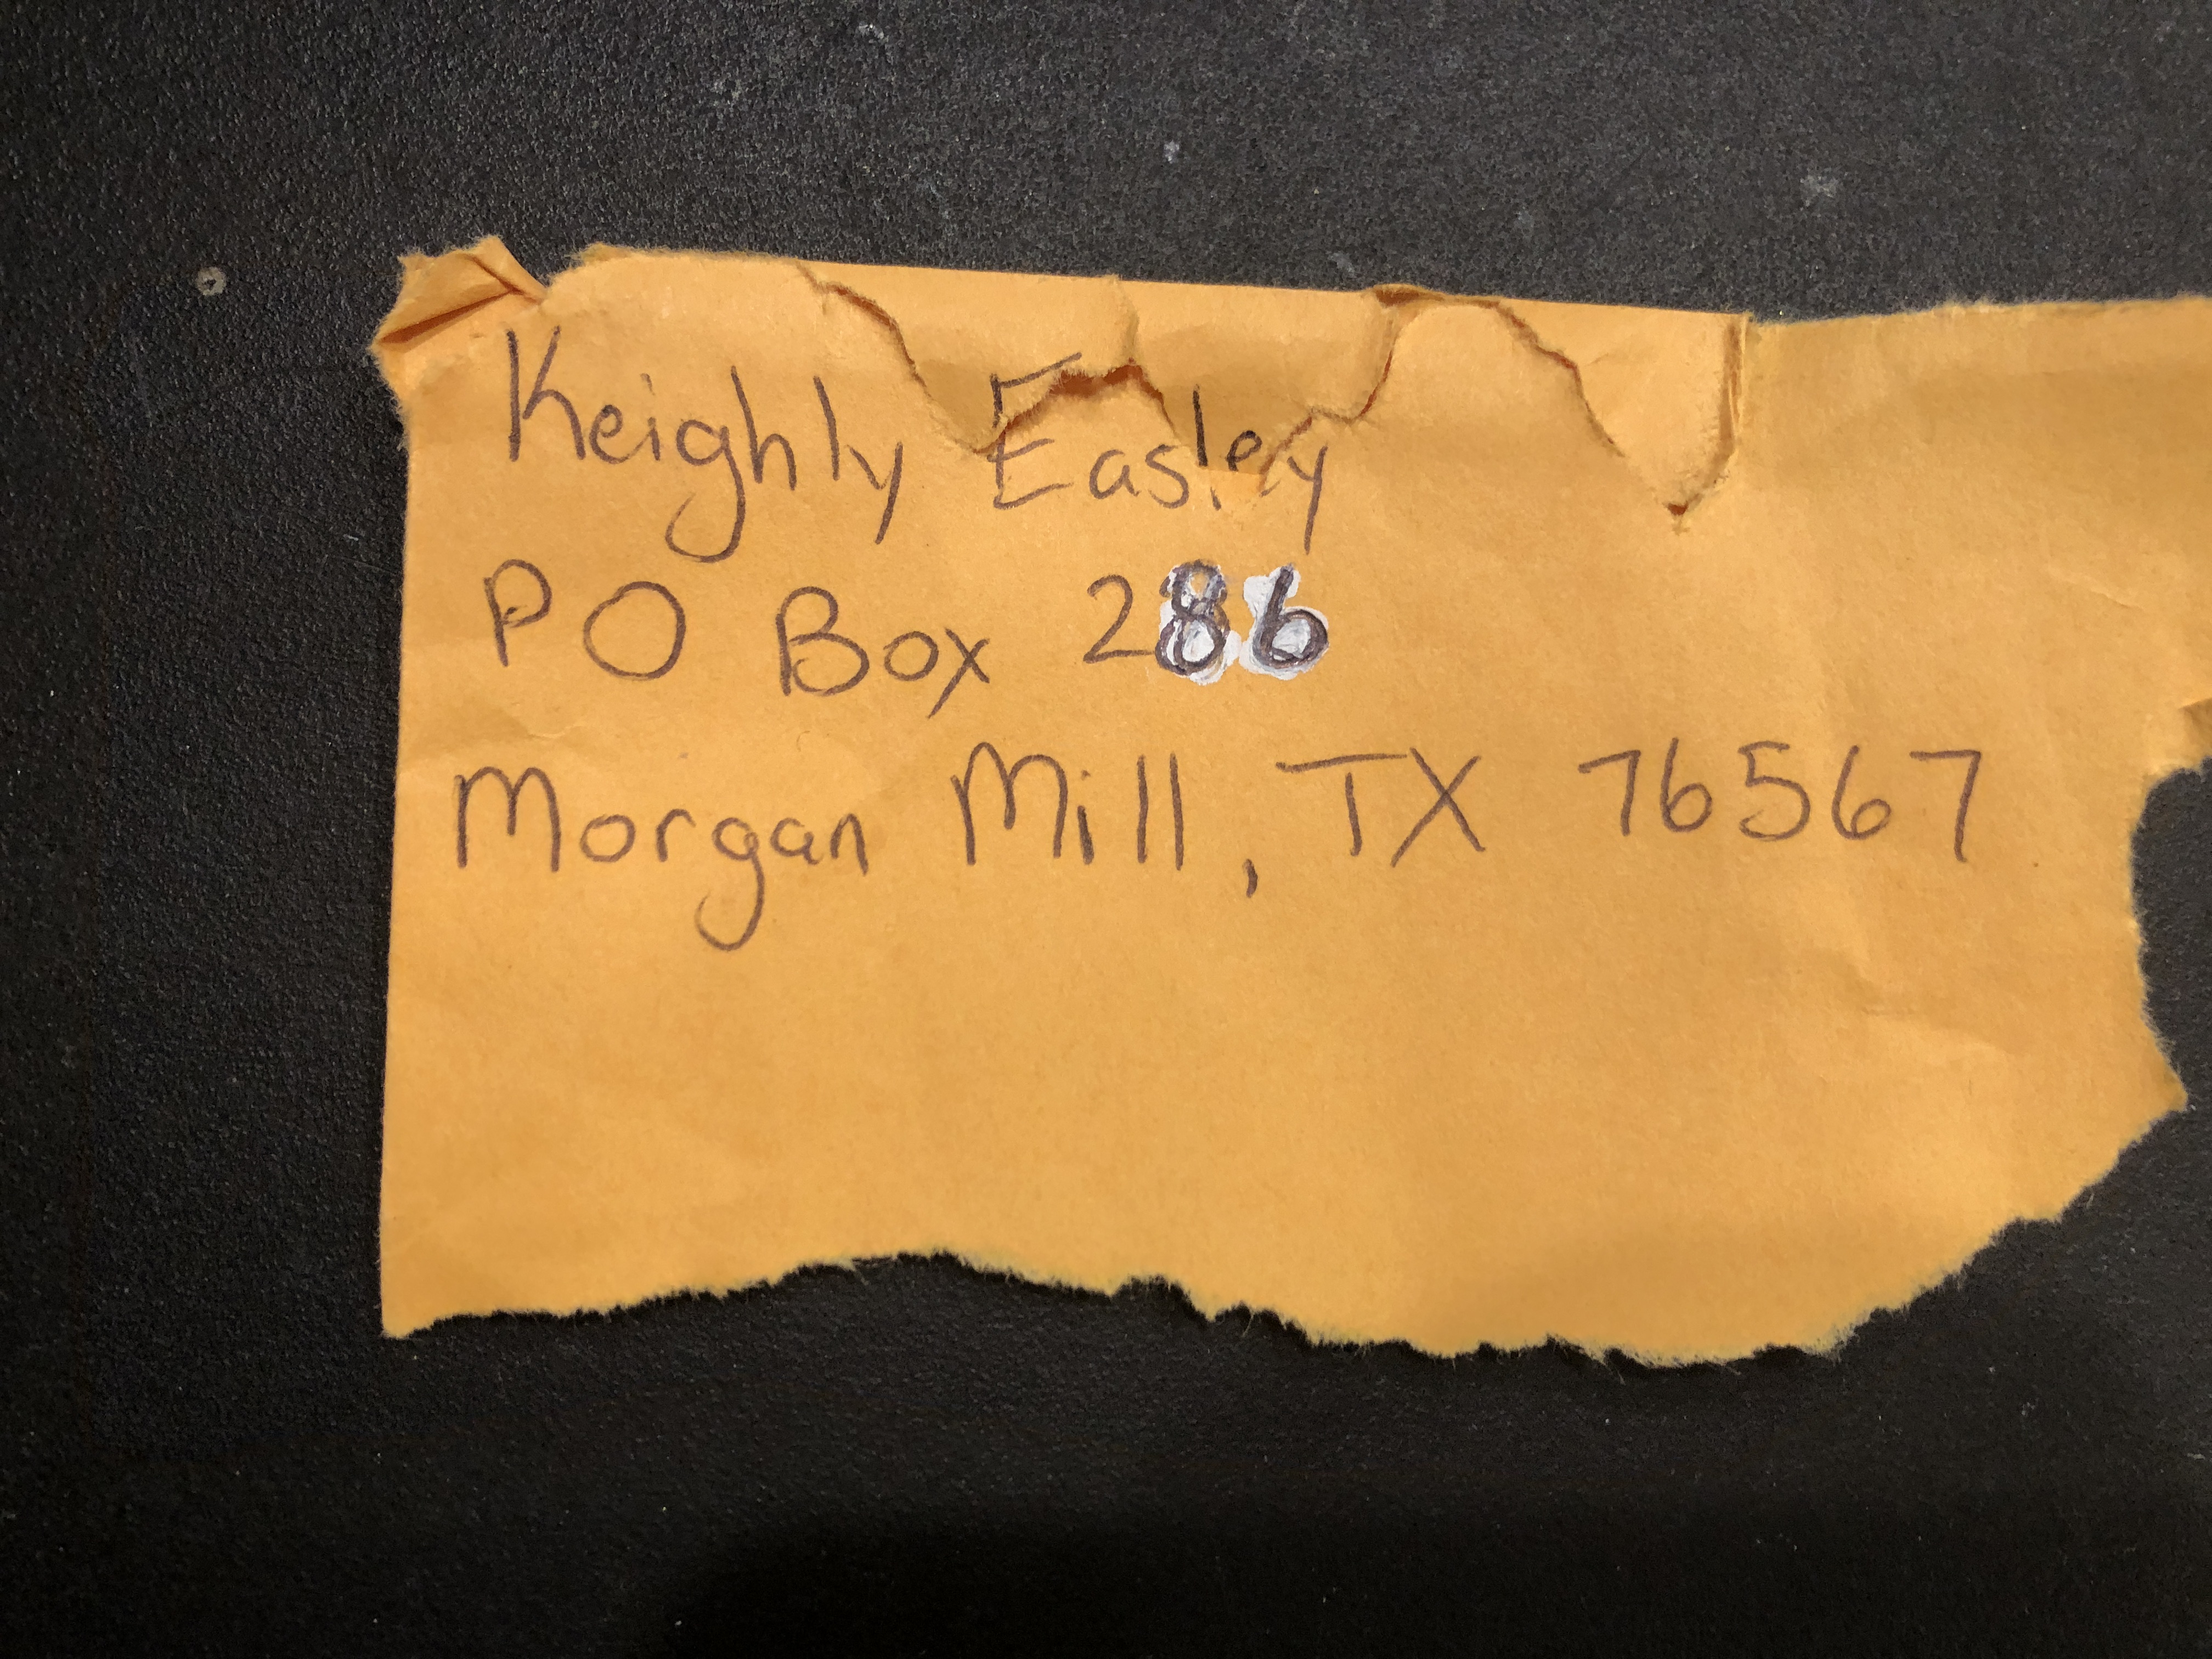 Keighly Easley
PO Box 286
Morgan Mill, TX 76567